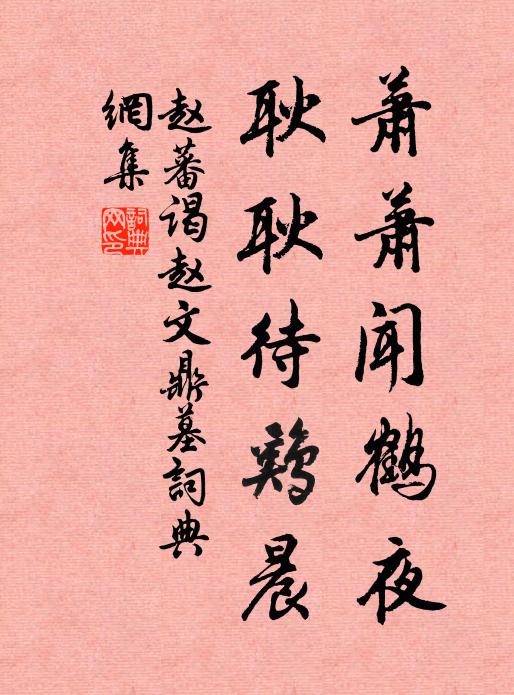 萧萧闻鹤夜
耿耿待鷄晨
赵蕃谒赵文鼎墓詞典
網集
詞典網印